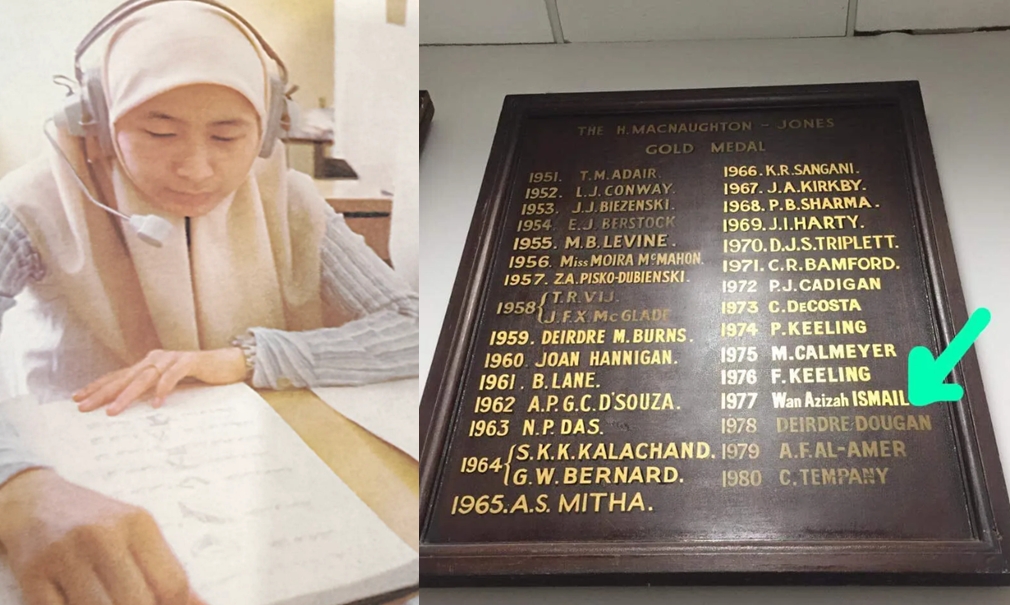 THE H. MACNAUGHTON - JONES
GOLD MEDAL
1951. T.M. ADAIR.
1952. L.J. CONWAY.
1953. J.J. BIEZENSKI.
1954. E.J. BERSTOCK
1955. M.B. LEVINE.
1956. Miss MOIRA McMAHON.
1957. Z.A. PISKO-DUBIENSKI.
1958 { T.R. VIJ.
J.F.X. Mc GLADE
1959. DEIRDRE M. BURNS.
1960. JOAN HANNIGAN.
1961. B. LANE.
1962 A.P.G.C. D'SOUZA.
1963 N.P. DAS.
1964 { S.K.K. KALACHAND.
G.W. BERNARD.
1965. A.S. MITHA.
1966. K.R. SANGANI.
1967. J.A. KIRKBY.
1968. P.B. SHARMA.
1969. J.I. HARTY.
1970. D.J.S. TRIPLETT.
1971. C.R. BAMFORD.
1972 P.J. CADIGAN
1973 C. DeCOSTA
1974 P. KEELING
1975 M. CALMEYER
1976 F. KEELING
1977 Wan Azizah ISMAIL
1978 DEIRDRE DOUGAN
1979 A.F. AL-AMER
1980 C. TEMPANY